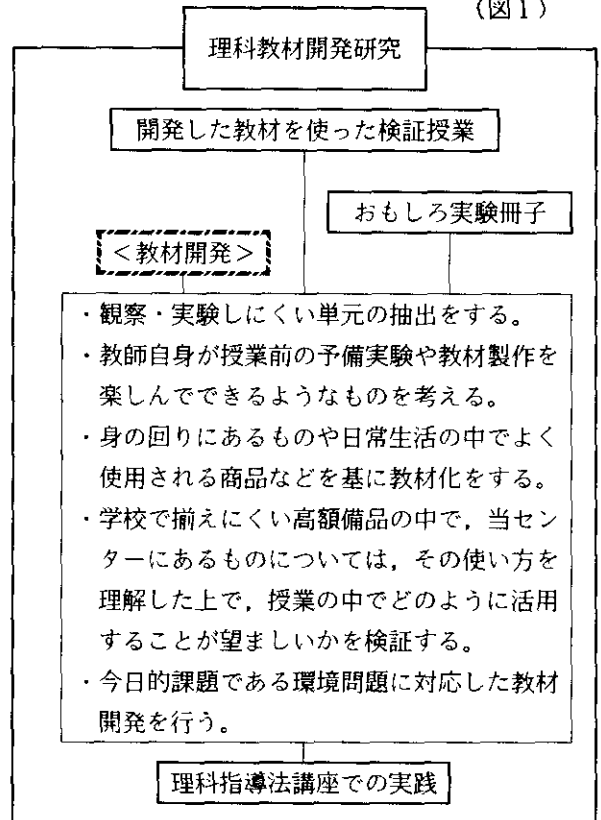 (図1)
理科教材開発研究
開発した教材を使った検証授業
おもしろ実験冊子
<教材開発>
・観察・実験しにくい単元の抽出をする。
・教師自身が授業前の予備実験や教材製作を
楽しんでできるようなものを考える。
・身の回りにあるものや日常生活の中でよく
使用される商品などを基に教材化をする。
・学校で揃えにくい高額備品の中で，当セン
ターにあるものについては，その使い方を
理解した上で，授業の中でどのように活用
することが望ましいかを検証する。
・今日的課題である環境問題に対応した教材
開発を行う。
理科指導法講座での実践